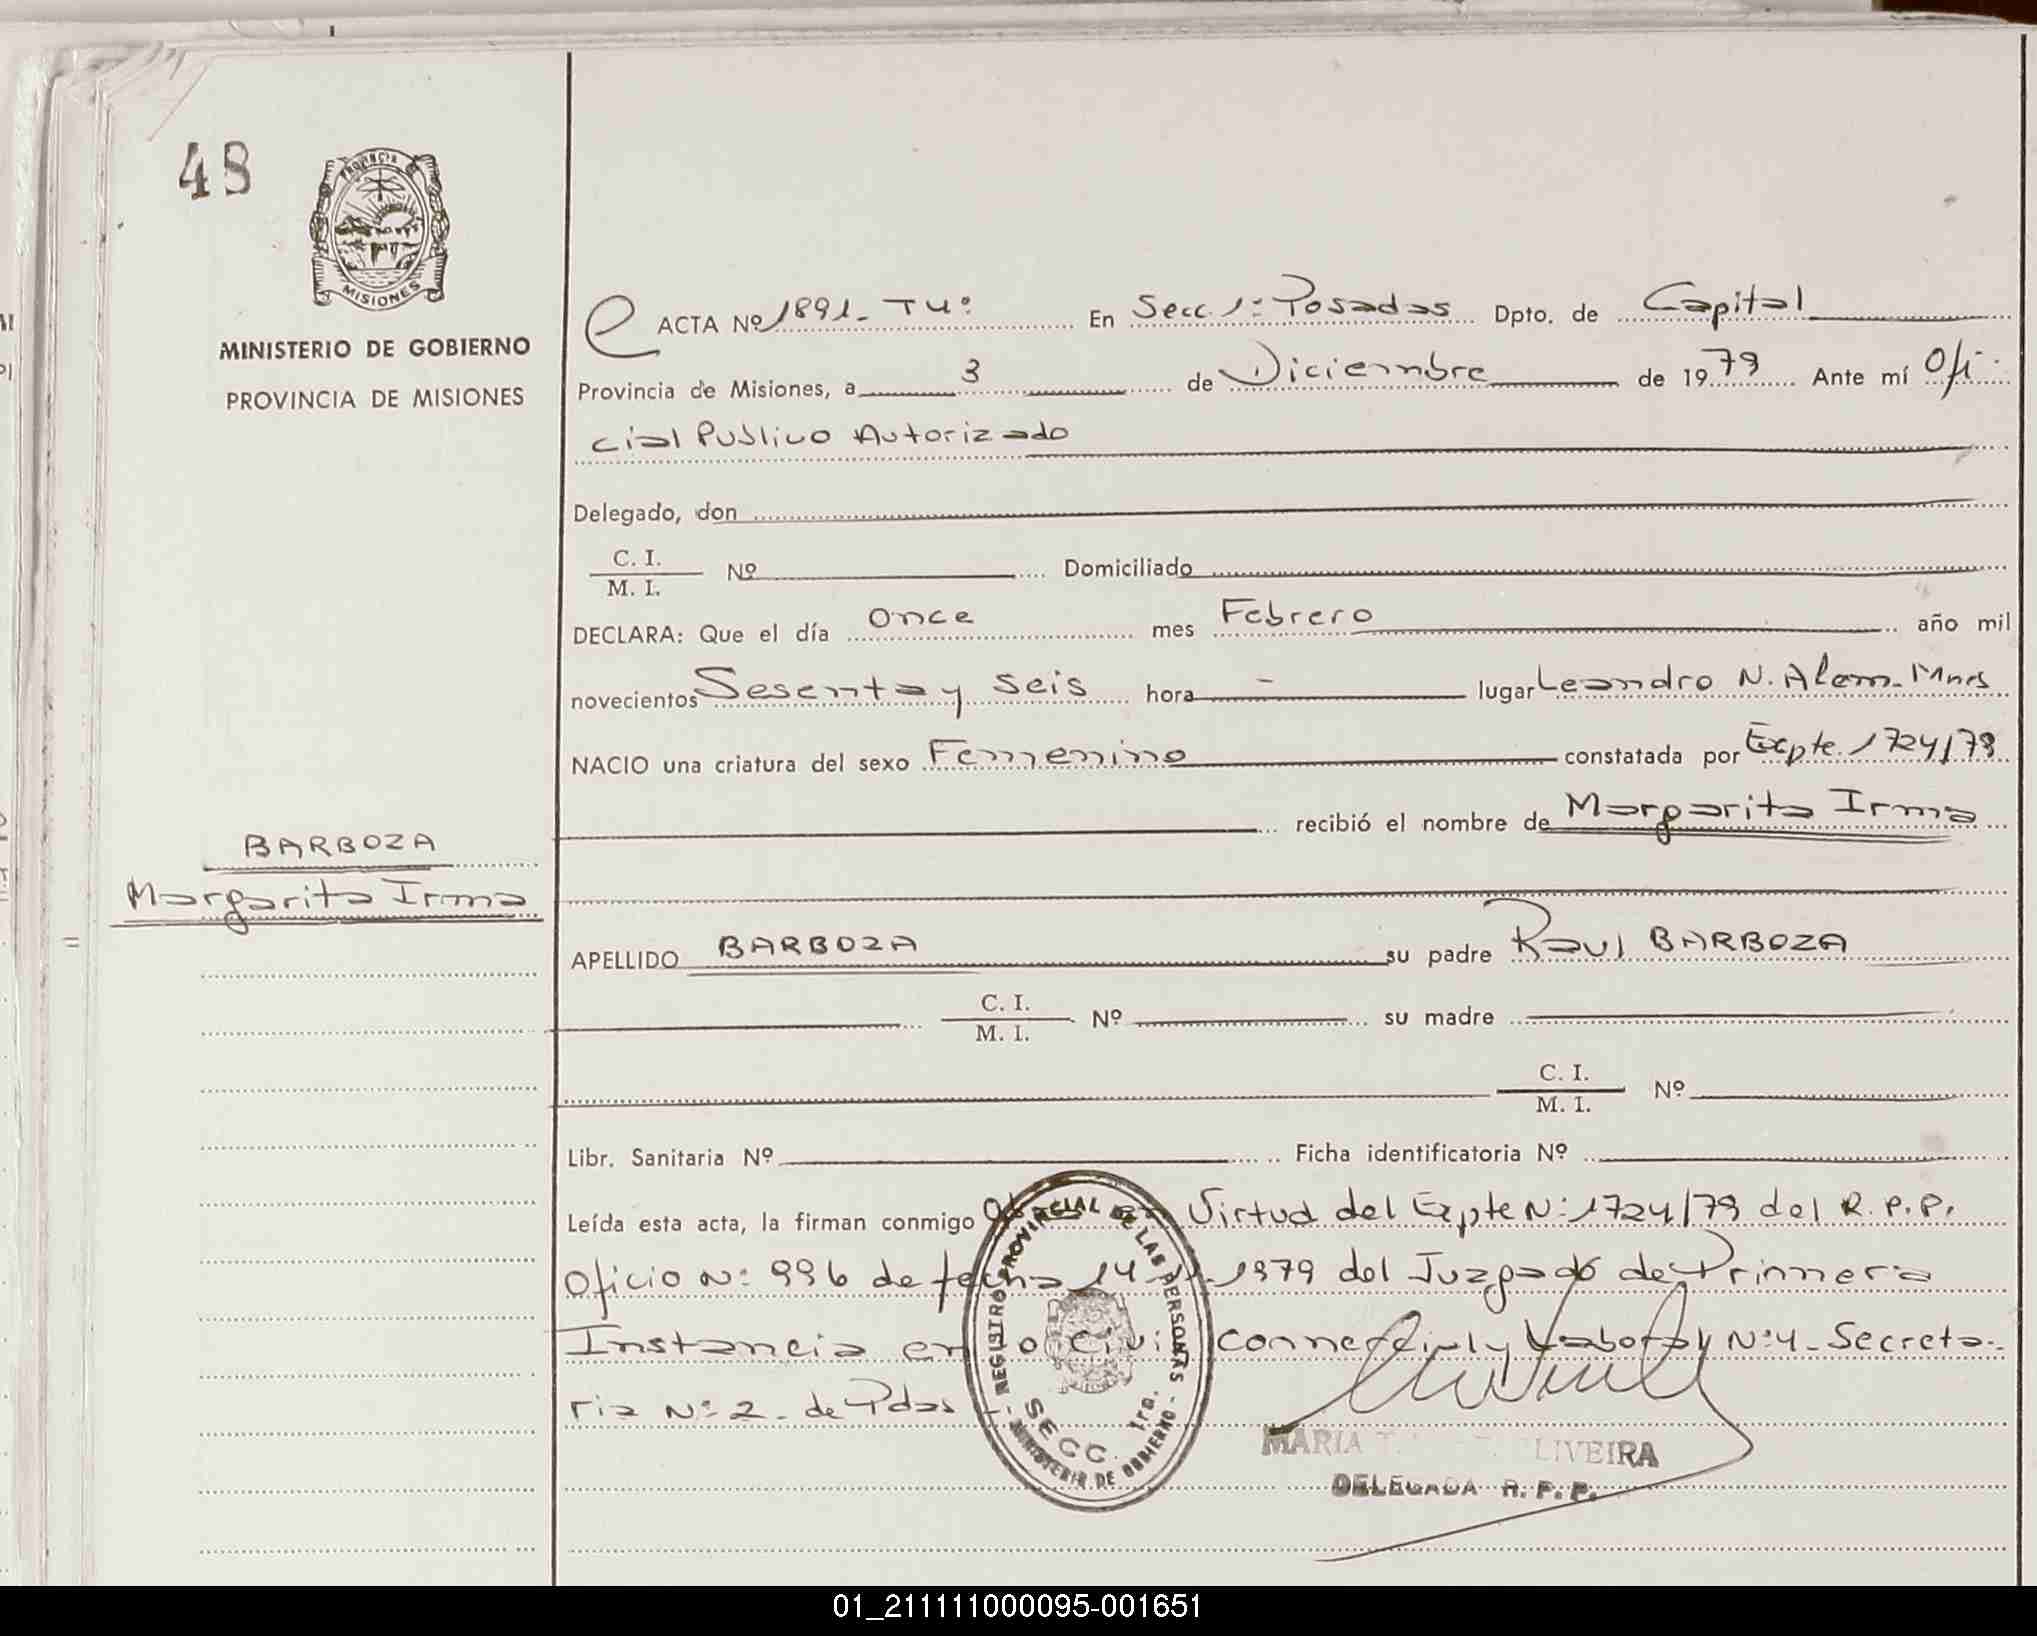 48
PROVINCIA
MISIONES
MINISTERIO DE GOBIERNO
PROVINCIA DE MISIONES
ACTA Nº 1891- Tº 4º En Secc. 1º Posadas Dpto. de Capital
Provincia de Misiones, a 3 de Diciembre de 1979 Ante mí Ofi-
cial Publico Autorizado
Delegado, don
C. I.
M. I.
Nº Domiciliado
DECLARA: Que el día once mes Febrero año mil
novecientos Sesenta y seis hora - lugar Leandro N. Alem- Mnes
NACIO una criatura del sexo Femenino constatada por Expte. 1724/79
recibió el nombre de Margarita Irma
BARBOZA
Margarita Irma
APELLIDO BARBOZA su padre Raul BARBOZA
C. I.
M. I.
Nº su madre
C. I.
M. I.
Nº
Libr. Sanitaria Nº Ficha identificatoria Nº
Leída esta acta, la firman conmigo en Virtud del Expte Nº 1724/79 del R.P.P.
Oficio Nº 996 de fecha 14 1979 del Juzgado de Primera
Instancia en lo Civil Comercial y Laboral Nº 4- Secreta-
ria Nº 2- de Pdas
REGISTRO PROVINCIAL DE LAS PERSONAS
SECC. 1ra.
MINISTERIO DE GOBIERNO
MARIA T. OLIVEIRA
DELEGADA R. P. P.
01_211111000095-001651